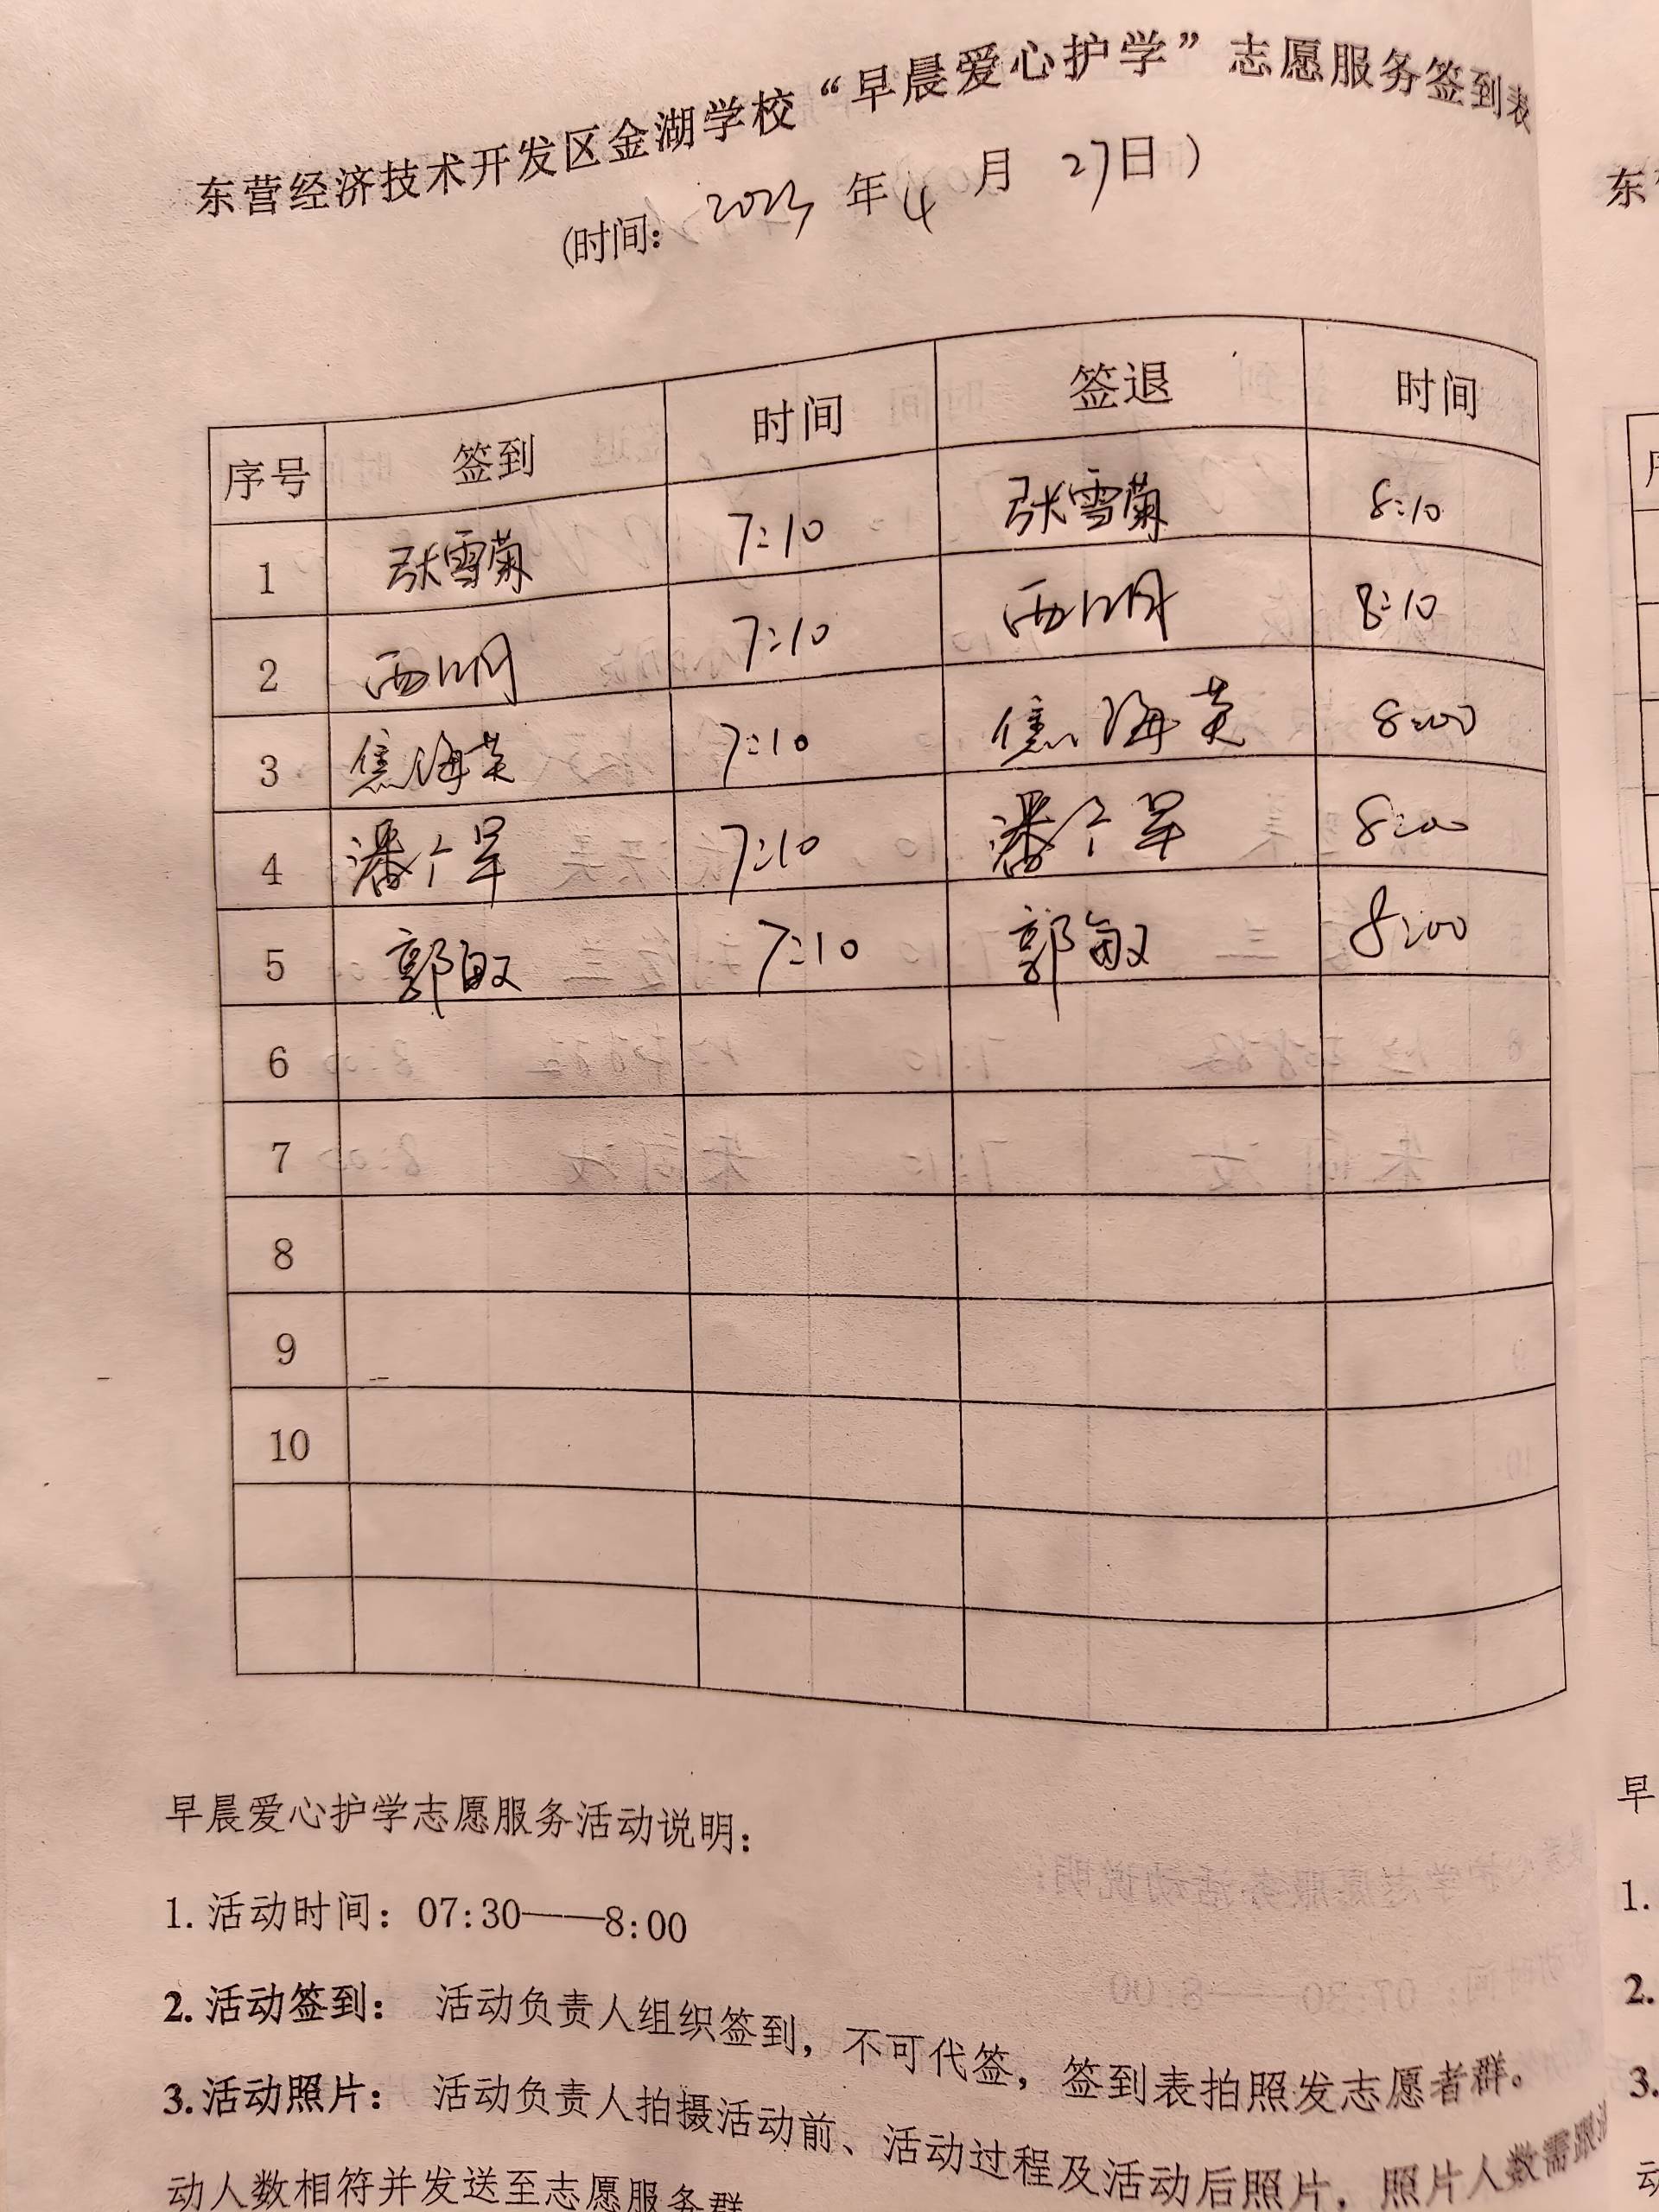 东营经济技术开发区金湖学校“早晨爱心护学”志愿服务签到表
(时间: 2023 年 4 月 27日)
序号 签到 时间 签退 时间
1 张雪菊 7:10 张雪菊 8:10
2 7:10 8:10
3 焦海英 7:10 焦海英 8:00
4 潘 7:10 潘 8:00
5 郭敏 7:10 郭敏 8:00
6
7
8
9
10
早晨爱心护学志愿服务活动说明:
1. 活动时间: 07:30——8:00
2. 活动签到: 活动负责人组织签到, 不可代签, 签到表拍照发志愿者群。
3. 活动照片: 活动负责人拍摄活动前、活动过程及活动后照片, 照片人数需跟
动人数相符并发送至志愿服务群
东
早
1.
2.
3.
动